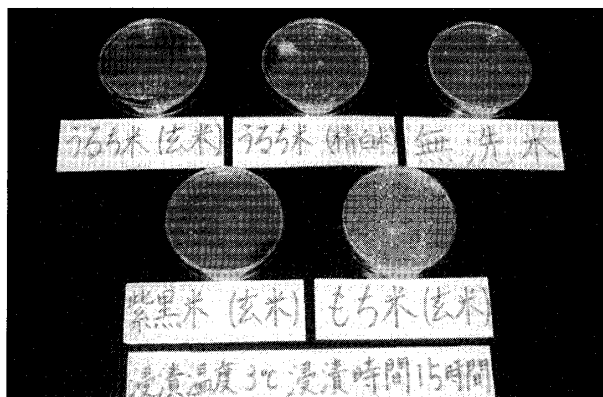 うるち米(玄米)
うるち米(精白米)
無洗米
紫黒米(玄米)
もち米(玄米)
浸漬温度3℃浸漬時間15時間